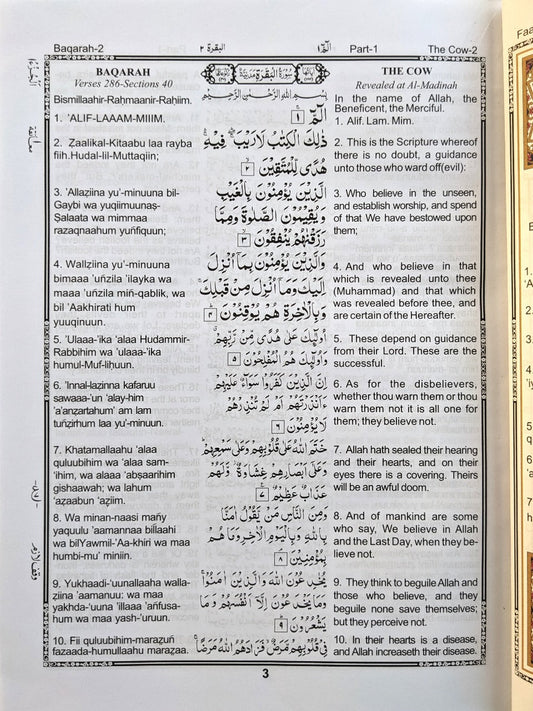 Baqarah-2
البقرة ٢
الٓمّٓ ١
Part-1
The Cow-2
BAQARAH
Verses 286-Sections 40
Bismillaahir-Raḥmaanir-Raḥiim.
1. 'ALIF-LAAAM-MIIIM.
2. Ẕaalikal-Kitaabu laa rayba
fiih.Hudal-lil-Muttaqiin;
3. 'Allaẕiina yu'-minuuna bil-
Gaybi wa yuqiimuunaṣ-
Ṣalaata wa mimmaa
razaqnaahum yuñfiquun;
4. Wallẕiina yu'-minuuna
bimaaa 'uñzila 'ilayka wa
maaa 'uñzila miñ-qablik, wa
bil 'Aakhirati hum
yuuqinuun.
5. 'Ulaaa-'ika 'alaa Hudammir-
Rabbihim wa 'ulaaa-'ika
humul-Muf-liḥuun.
6. 'Innal-laẕinna kafaruu
sawaaa-'un 'alay-him
'a'anẕartahum' am lam
tuñẕirhum laa yu'-minuun.
7. Khatamallaahu 'alaa
quluubihim wa 'alaa sam-
'ihim, wa alaaa 'abṣaarihim
gishaawah; wa lahum
'aẕaabun 'aẓiim.
8. Wa minan-naasi mañy
yaquulu 'aamannaa billaahi
wa bilYawmil-'Aa-khiri wa maa
humbi-mu' miniin.
9. Yukhaadi-'uunallaaha walla-
ẕiina 'aamanuu: wa maa
yakhda-'uuna 'illaaa 'añfusa-
hum wa maa yash-'uruun.
10. Fii quluubihim-maraẓuñ
fazaada-humullaahu maraẓaa.
سُوْرَةُ الْبَقَرَةِ مَدَنِيَّةٌ
بِسْمِ اللهِ الرَّحْمٰنِ الرَّحِيْمِ
الٓمّٓ ۝١
ذٰلِكَ الْكِتٰبُ لَا رَيْبَ ۛ فِيْهِ ۛ
هُدًى لِّلْمُتَّقِيْنَ ۝٢
الَّذِيْنَ يُؤْمِنُوْنَ بِالْغَيْبِ
وَيُقِيْمُوْنَ الصَّلٰوةَ وَمِمَّا
رَزَقْنٰهُمْ يُنْفِقُوْنَ ۝٣
وَالَّذِيْنَ يُؤْمِنُوْنَ بِمَآ اُنْزِلَ
اِلَيْكَ وَمَآ اُنْزِلَ مِنْ قَبْلِكَ ۚ
وَبِالْاٰخِرَةِ هُمْ يُوْقِنُوْنَ ۝٤
اُولٰٓئِكَ عَلٰى هُدًى مِّنْ رَّبِّهِمْ ۗ
وَاُولٰٓئِكَ هُمُ الْمُفْلِحُوْنَ ۝٥
اِنَّ الَّذِيْنَ كَفَرُوْا سَوَآءٌ عَلَيْهِمْ
ءَاَنْذَرْتَهُمْ اَمْ لَمْ تُنْذِرْهُمْ
لَا يُؤْمِنُوْنَ ۝٦
خَتَمَ اللهُ عَلٰى قُلُوْبِهِمْ وَعَلٰى سَمْعِهِمْ ۗ
وَعَلٰٓى اَبْصَارِهِمْ غِشَاوَةٌ ۖ وَّلَهُمْ
عَذَابٌ عَظِيْمٌ ۝٧
وَمِنَ النَّاسِ مَنْ يَّقُوْلُ اٰمَنَّا
بِاللهِ وَبِالْيَوْمِ الْاٰخِرِ وَمَا هُمْ
بِمُؤْمِنِيْنَ ۝٨
يُخٰدِعُوْنَ اللهَ وَالَّذِيْنَ اٰمَنُوْا ۚ
وَمَا يَخْدَعُوْنَ اِلَّآ اَنْفُسَهُمْ وَمَا
يَشْعُرُوْنَ ۝٩
فِيْ قُلُوْبِهِمْ مَّرَضٌ ۙ فَزَادَهُمُ اللهُ مَرَضًا ۚ
THE COW
Revealed at Al-Madinah
In the name of Allah, the
Beneficent, the Merciful.
1. Alif. Lam. Mim.
2. This is the Scripture whereof
there is no doubt, a guidance
unto those who ward off(evil):
3. Who believe in the unseen,
and establish worship, and spend
of that We have bestowed upon
them;
4. And who believe in that
which is revealed unto thee
(Muhammad) and that which
was revealed before thee, and
are certain of the Hereafter.
5. These depend on guidance
from their Lord. These are the
successful.
6. As for the disbelievers,
whether thou warn them or thou
warn them not it is all one for
them; they believe not.
7. Allah hath sealed their hearing
and their hearts, and on their
eyes there is a covering. Theirs
will be an awful doom.
8. And of mankind are some
who say, We believe in Allah
and the Last Day, when they be-
lieve not.
9. They think to beguile Allah and
those who believe, and they
beguile none save themselves;
but they perceive not.
10. In their hearts is a disease,
and Allah increaseth their disease.
3
Faa